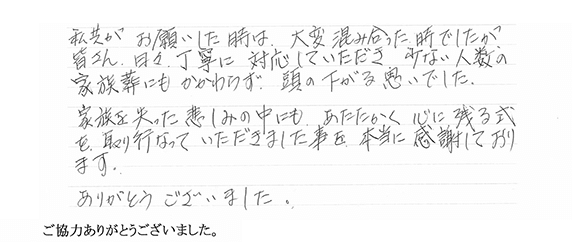 私共が お願いした時は、大変混み合った時でしたが
皆さん、日々、丁寧に 対応していただき、少ない人数の
家族葬にも かかわらず、頭の下がる思いでした。
家族を失った悲しみの中にも、あたたかく 心に残る式
を、取り行なって いただきました事を、本当に感謝しており
ます。
ありがとうございました。
ご協力ありがとうございました。